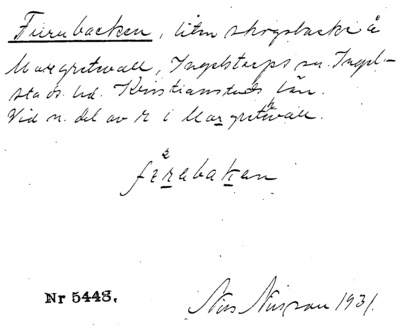 Furubacken, liten skogsbacke å
Margretevall, Ingelstorps sn. Ingel-
stads hd. Kristianstads län.
Vid n. del av R i Margretevall.
Nr 5443.
Nils Nilsson 1931.